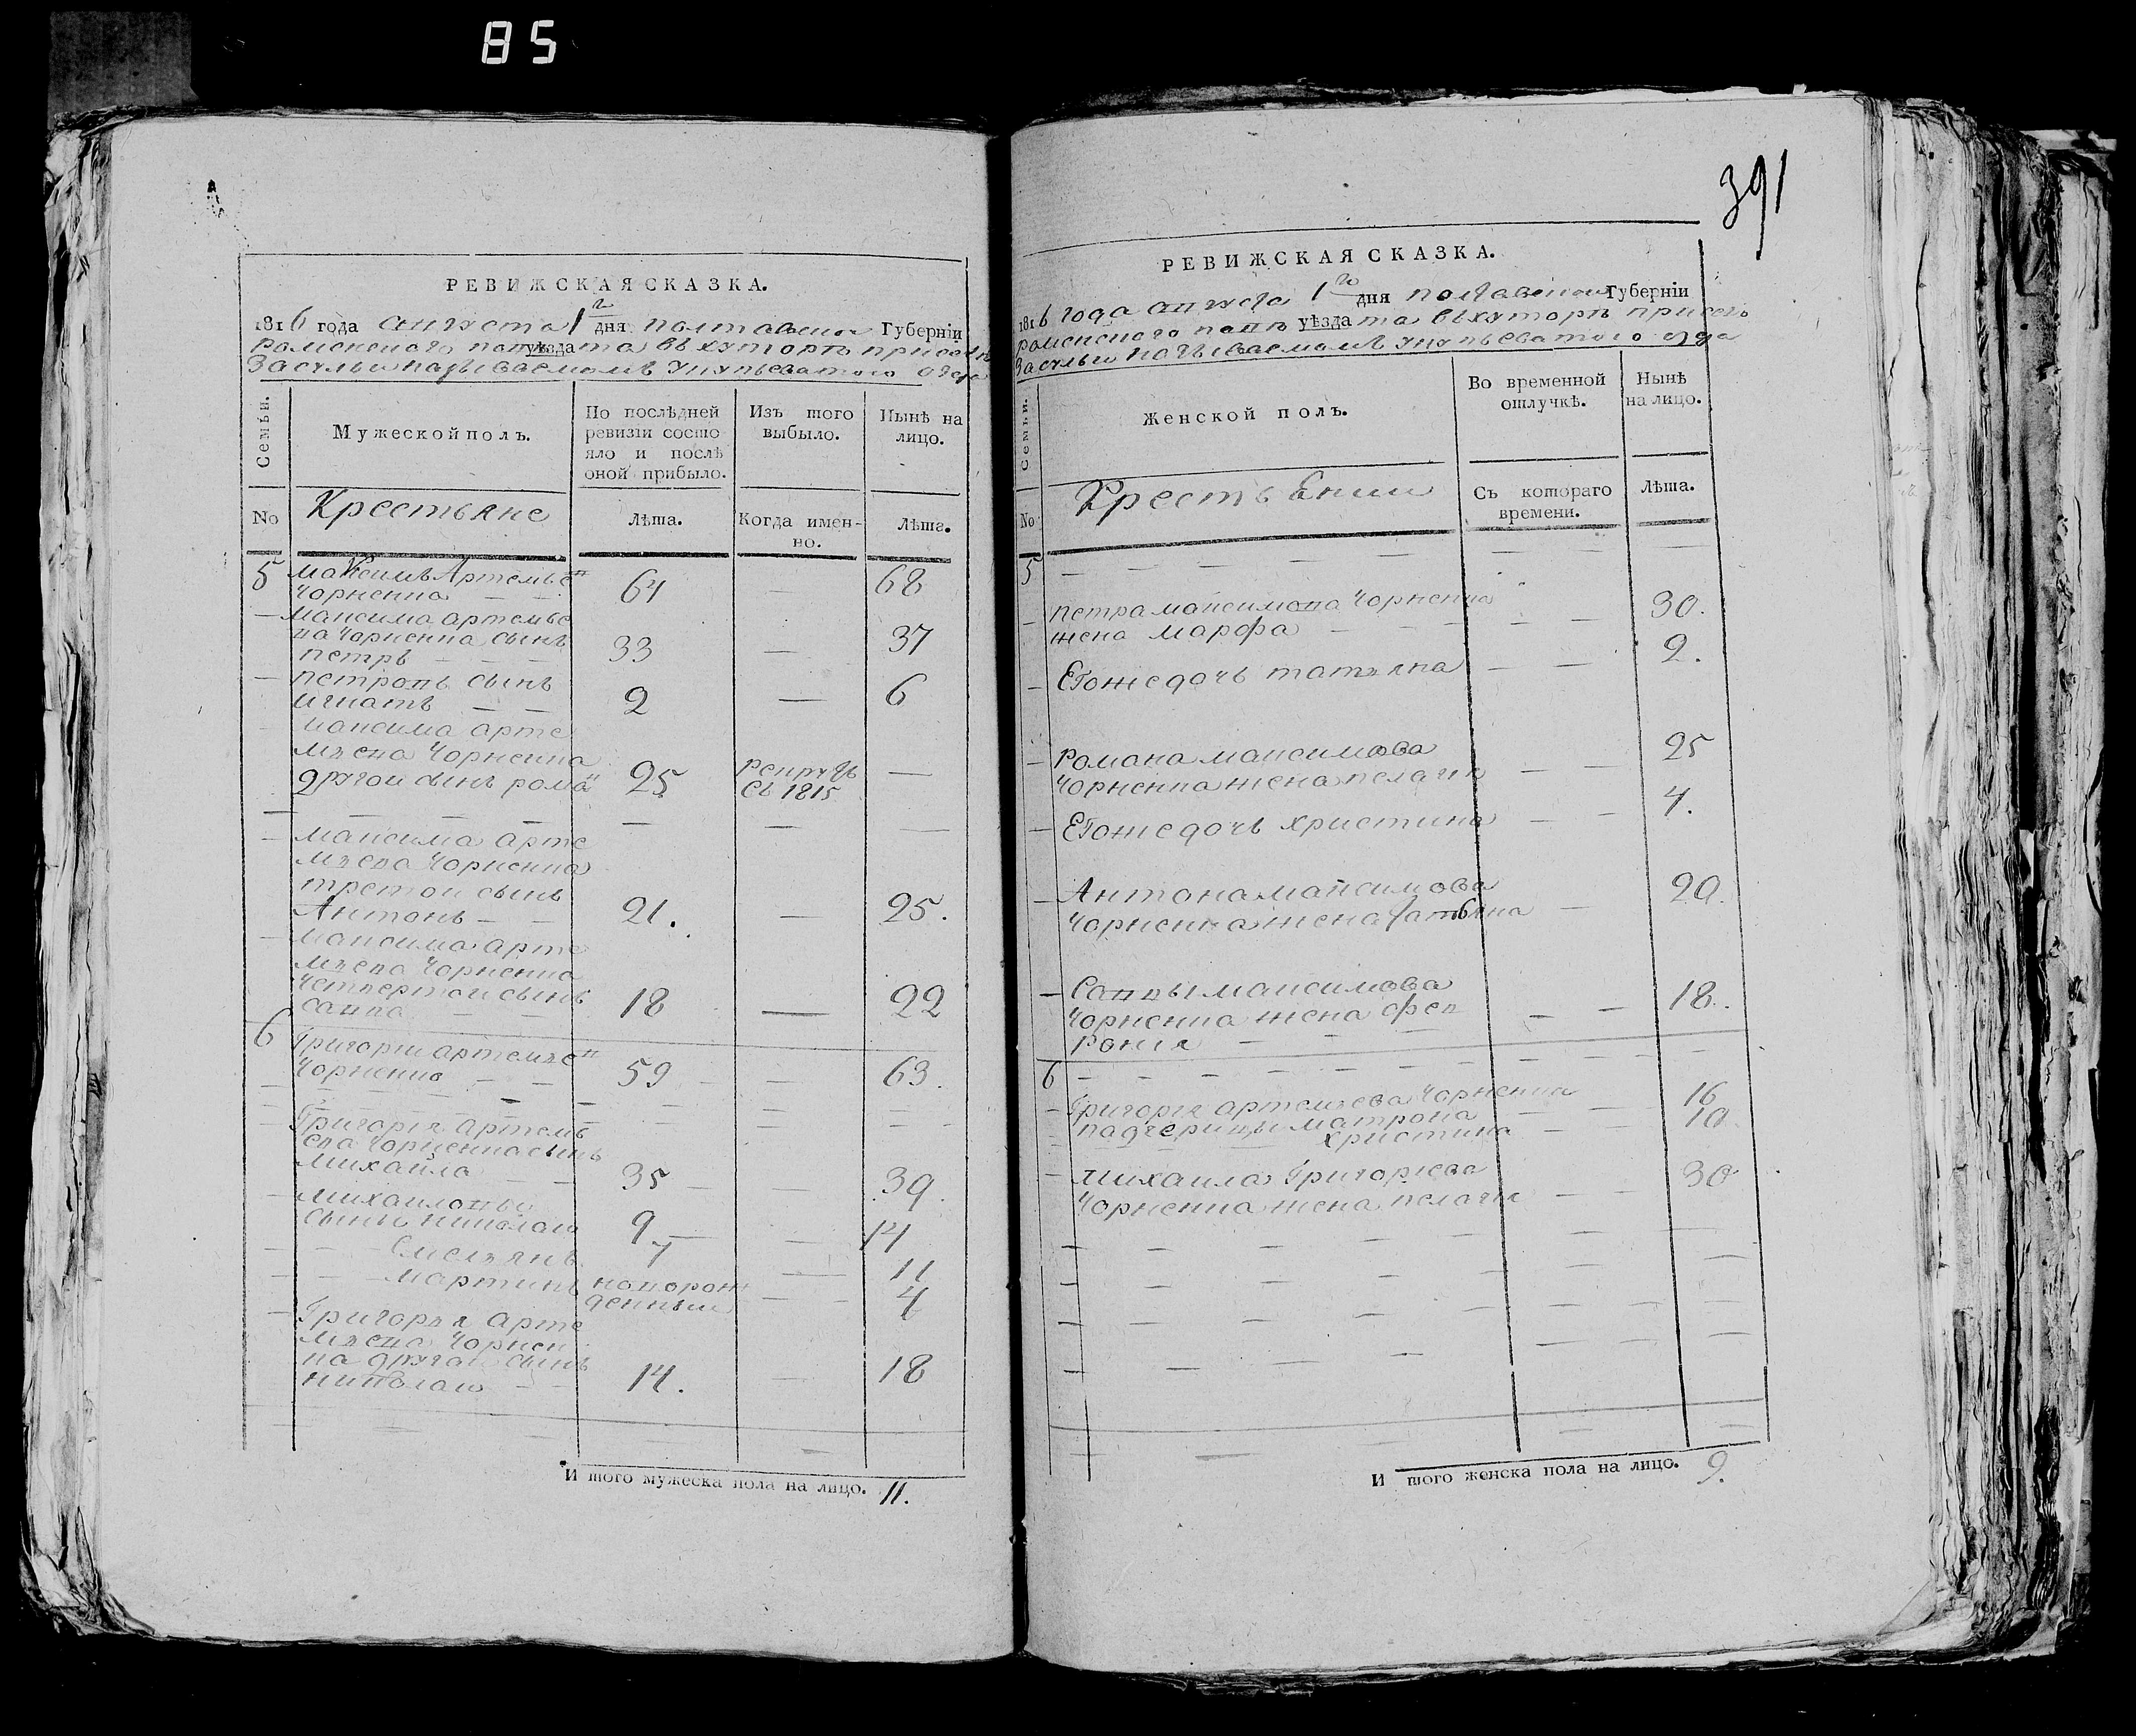 85
391
РЕВИЖСКАЯ СКАЗКА.
1816 года августа 1 го дня полтавской Губерніи
роменского повѣ уѣзда та въ хуторѣ при селѣ
Засульи называемомъ
Семьи.
Мужеской полъ.
По послѣдней
ревизіи состо
яло и послѣ
оной прибыло.
Изъ того
выбыло.
Нынѣ на
лицо.
No
Крестьяне
Лѣта.
Когда имен-
но.
Лѣта.
5 максимъ Артемьевъ
Чорненко 64 — 68
— максима артемье
ва Чорненка сынъ
петръ — — — 33 — 37
— петровъ сынъ
игнатъ — — 2 — 6
максима арте
мъева Чорненка
другой сынъ романъ 25 рекрутъ —
съ 1815
— максима арте
мъева Чорненка
третой сынъ
Антонъ — — 21. — 25.
— максима арте
мъева Чорненка
четвертой сынъ
савва — — 18 — 22
6 Григорій артемъевъ
Чорненко — — 59 — 63.
Григорія артемъ
ева Чорненка сынъ
михайло — — 35 — 39.
— михайловы
сыны николай 9 — 14
— — Емельянъ 7 — 11
— — мартинъ новорож — 4
денный
— Григорья арте
мъева Чорнен
ка другой сынъ
николай — — 14. — 18
И того мужеска пола на лицо. 11.
РЕВИЖСКАЯ СКАЗКА.
1816 года августа 1 го дня полтавской Губерніи
роменского повѣ уѣзда та въ хуторѣ при селѣ
Засульи называемомъ
Семьи.
Женской полъ.
Во временной
отлучкѣ.
Нынѣ
на лицо.
No
Крестьянки
Съ котораго
времени.
Лѣта.
5 — — — — —
— петра максимова Чорненка
жена марфа — — — 30.
— Егожедочь татьяна — — 2.
— романа максимова
Чорненка жена пелагия — — 25
— Егожедочь христина — — 4.
— Антона максимова
Чорненка жена татьяна — 20.
— Саввы максимова
Чорненка жена фев — — 18.
рония — — —
6 — — — — —
— Григорія артемъева Чорненка
падчерицы матрона — — 16
христина — — 10.
— михаила Григориева
Чорненка жена пелагия — — 30
И того женска пола на лицо. 9.